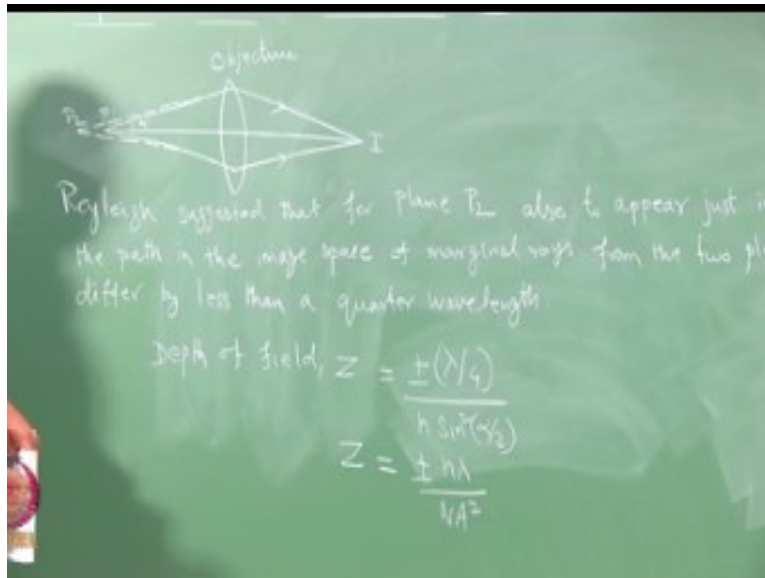 Objective
P2 P1
I
Rayleigh suggested that for plane P2 also to appear just i
the path in the image space of marginal rays from the two pl
differ by less than a quarter wavelength
Depth of field, Z = ±(λ/4)
n sin²(α/2)
Z = ± nλ
NA²